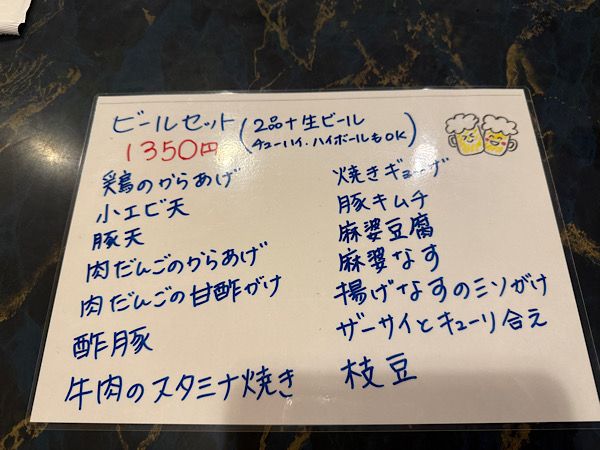 ビールセット(2品+生ビール
1350円 チューハイ.ハイボールもOK)
鶏のからあげ
小エビ天
豚天
肉だんごのからあげ
肉だんごの甘酢がけ
酢豚
牛肉のスタミナ焼き
焼きギョーザ
豚キムチ
麻婆豆腐
麻婆なす
揚げなすのミソがけ
ザーサイとキューリ合え
枝豆